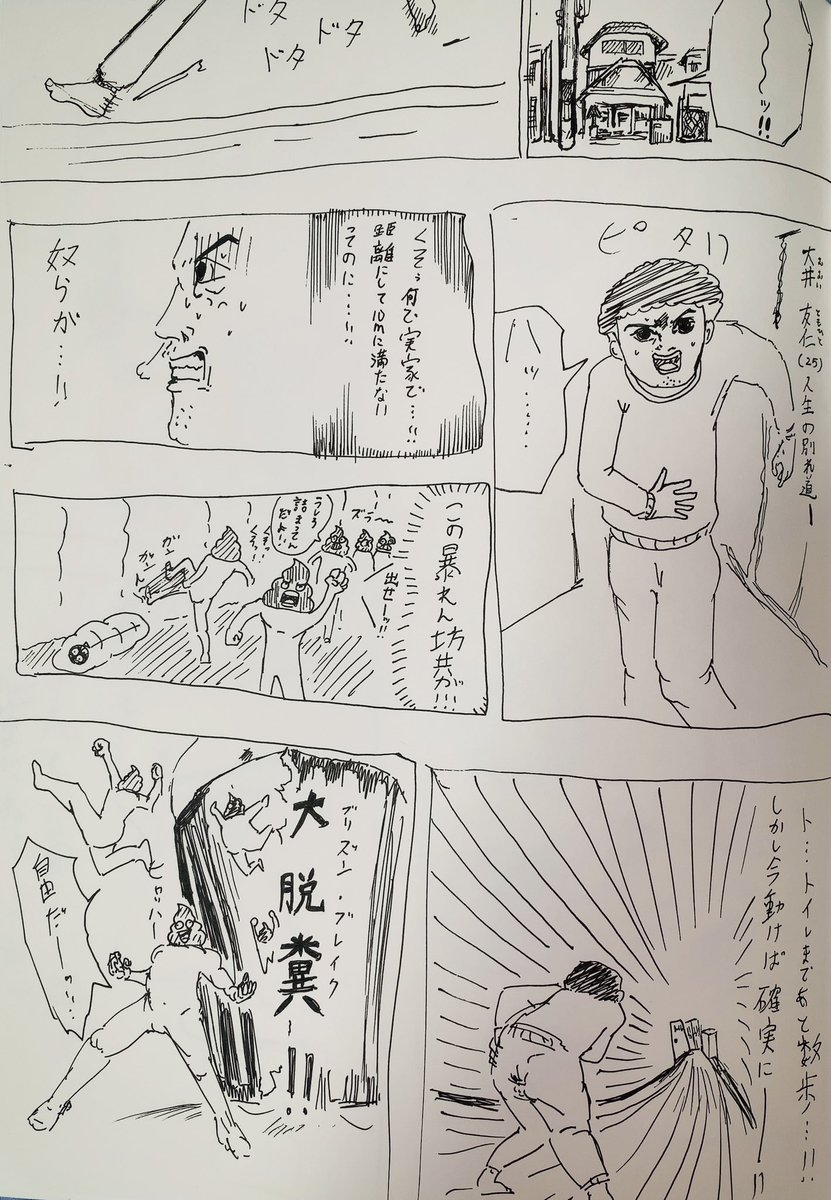 〜〜ッ!!
ドタ
ドタ
ドタ
大井 友仁(25)人生の別れ道ー
おおい ともひと
ピタッ
ハッ……
くそぅ何で実家で…!!
距離にして10mに満たない
ってのに…!!
奴らが…!!
この暴れん坊共が!!!
ズラ〜
出せーッ!!
うしろ
詰まってん
だよ!!
ガン
ガン
ト…トイレまであと数歩…!!
しかし今動けば確実にーー!?
プリズン・ブレイク
大脱糞ー!!
ヒャッハー
自由だーッ!!